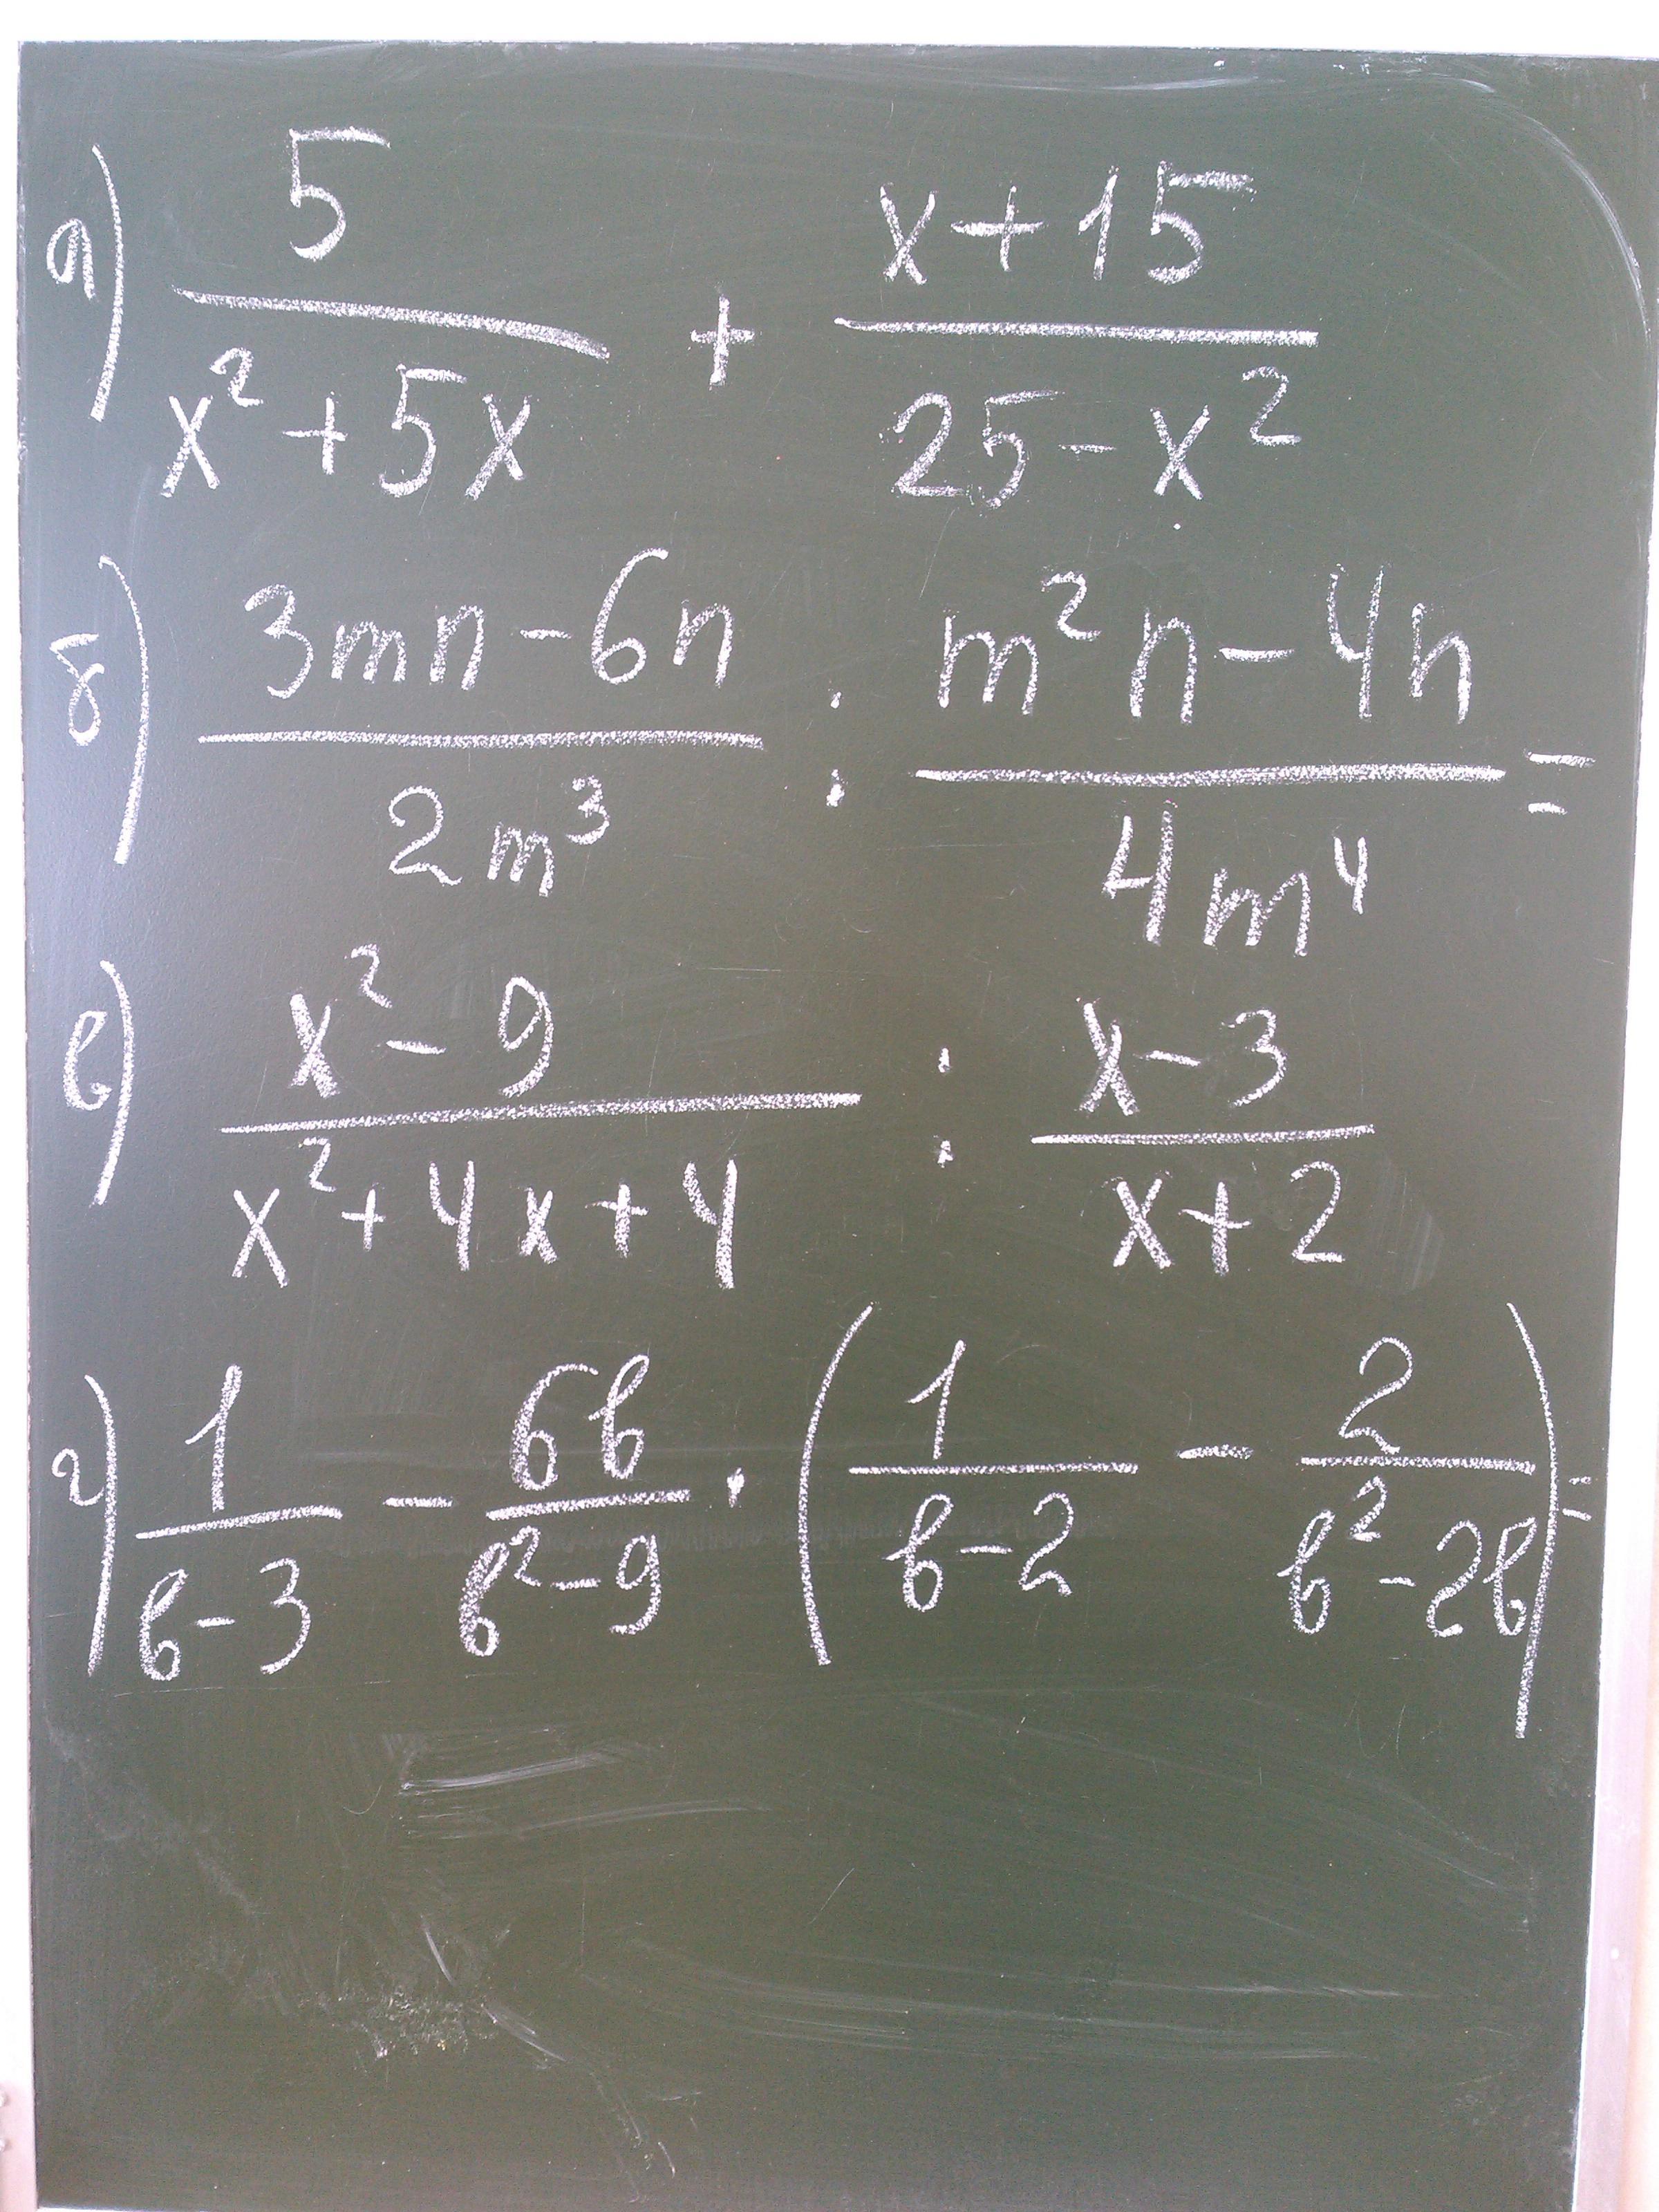 а) 5/(x²+5x) + (x+15)/(25-x²)
б) (3mn-6n)/(2m³) : (m²n-4n)/(4m⁴) =
в) (x²-9)/(x²+4x+4) : (x-3)/(x+2)
г) 1/(b-3) - 6b/(b²-9) · (1/(b-2) - 2/(b²-2b)) =